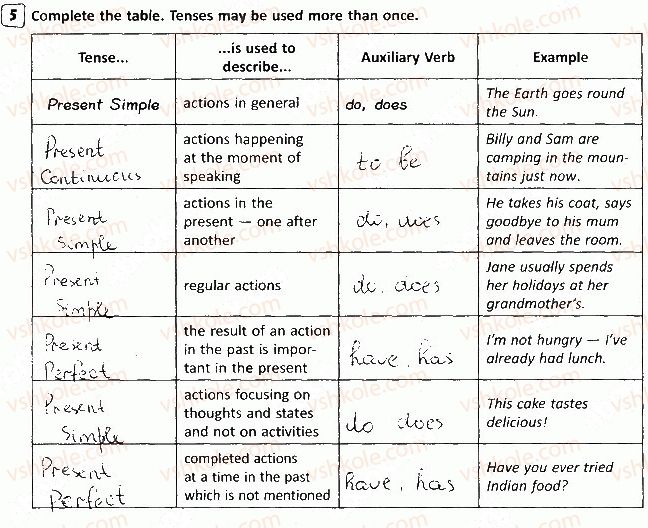 5 Complete the table. Tenses may be used more than once.
Tense...
...is used to
describe...
Auxiliary Verb
Example
Present Simple
actions in general
do, does
The Earth goes round
the Sun.
Present
Continuous
actions happening
at the moment of
speaking
to be
Billy and Sam are
camping in the moun-
tains just now.
Present
Simple
actions in the
present — one after
another
do, does
He takes his coat, says
goodbye to his mum
and leaves the room.
Present
Simple
regular actions
do, does
Jane usually spends
her holidays at her
grandmother's.
Present
Perfect
the result of an action
in the past is impor-
tant in the present
have, has
I'm not hungry — I've
already had lunch.
Present
Simple
actions focusing on
thoughts and states
and not on activities
do does
This cake tastes
delicious!
Present
Perfect
completed actions
at a time in the past
which is not mentioned
have, has
Have you ever tried
Indian food?
vshkole.com